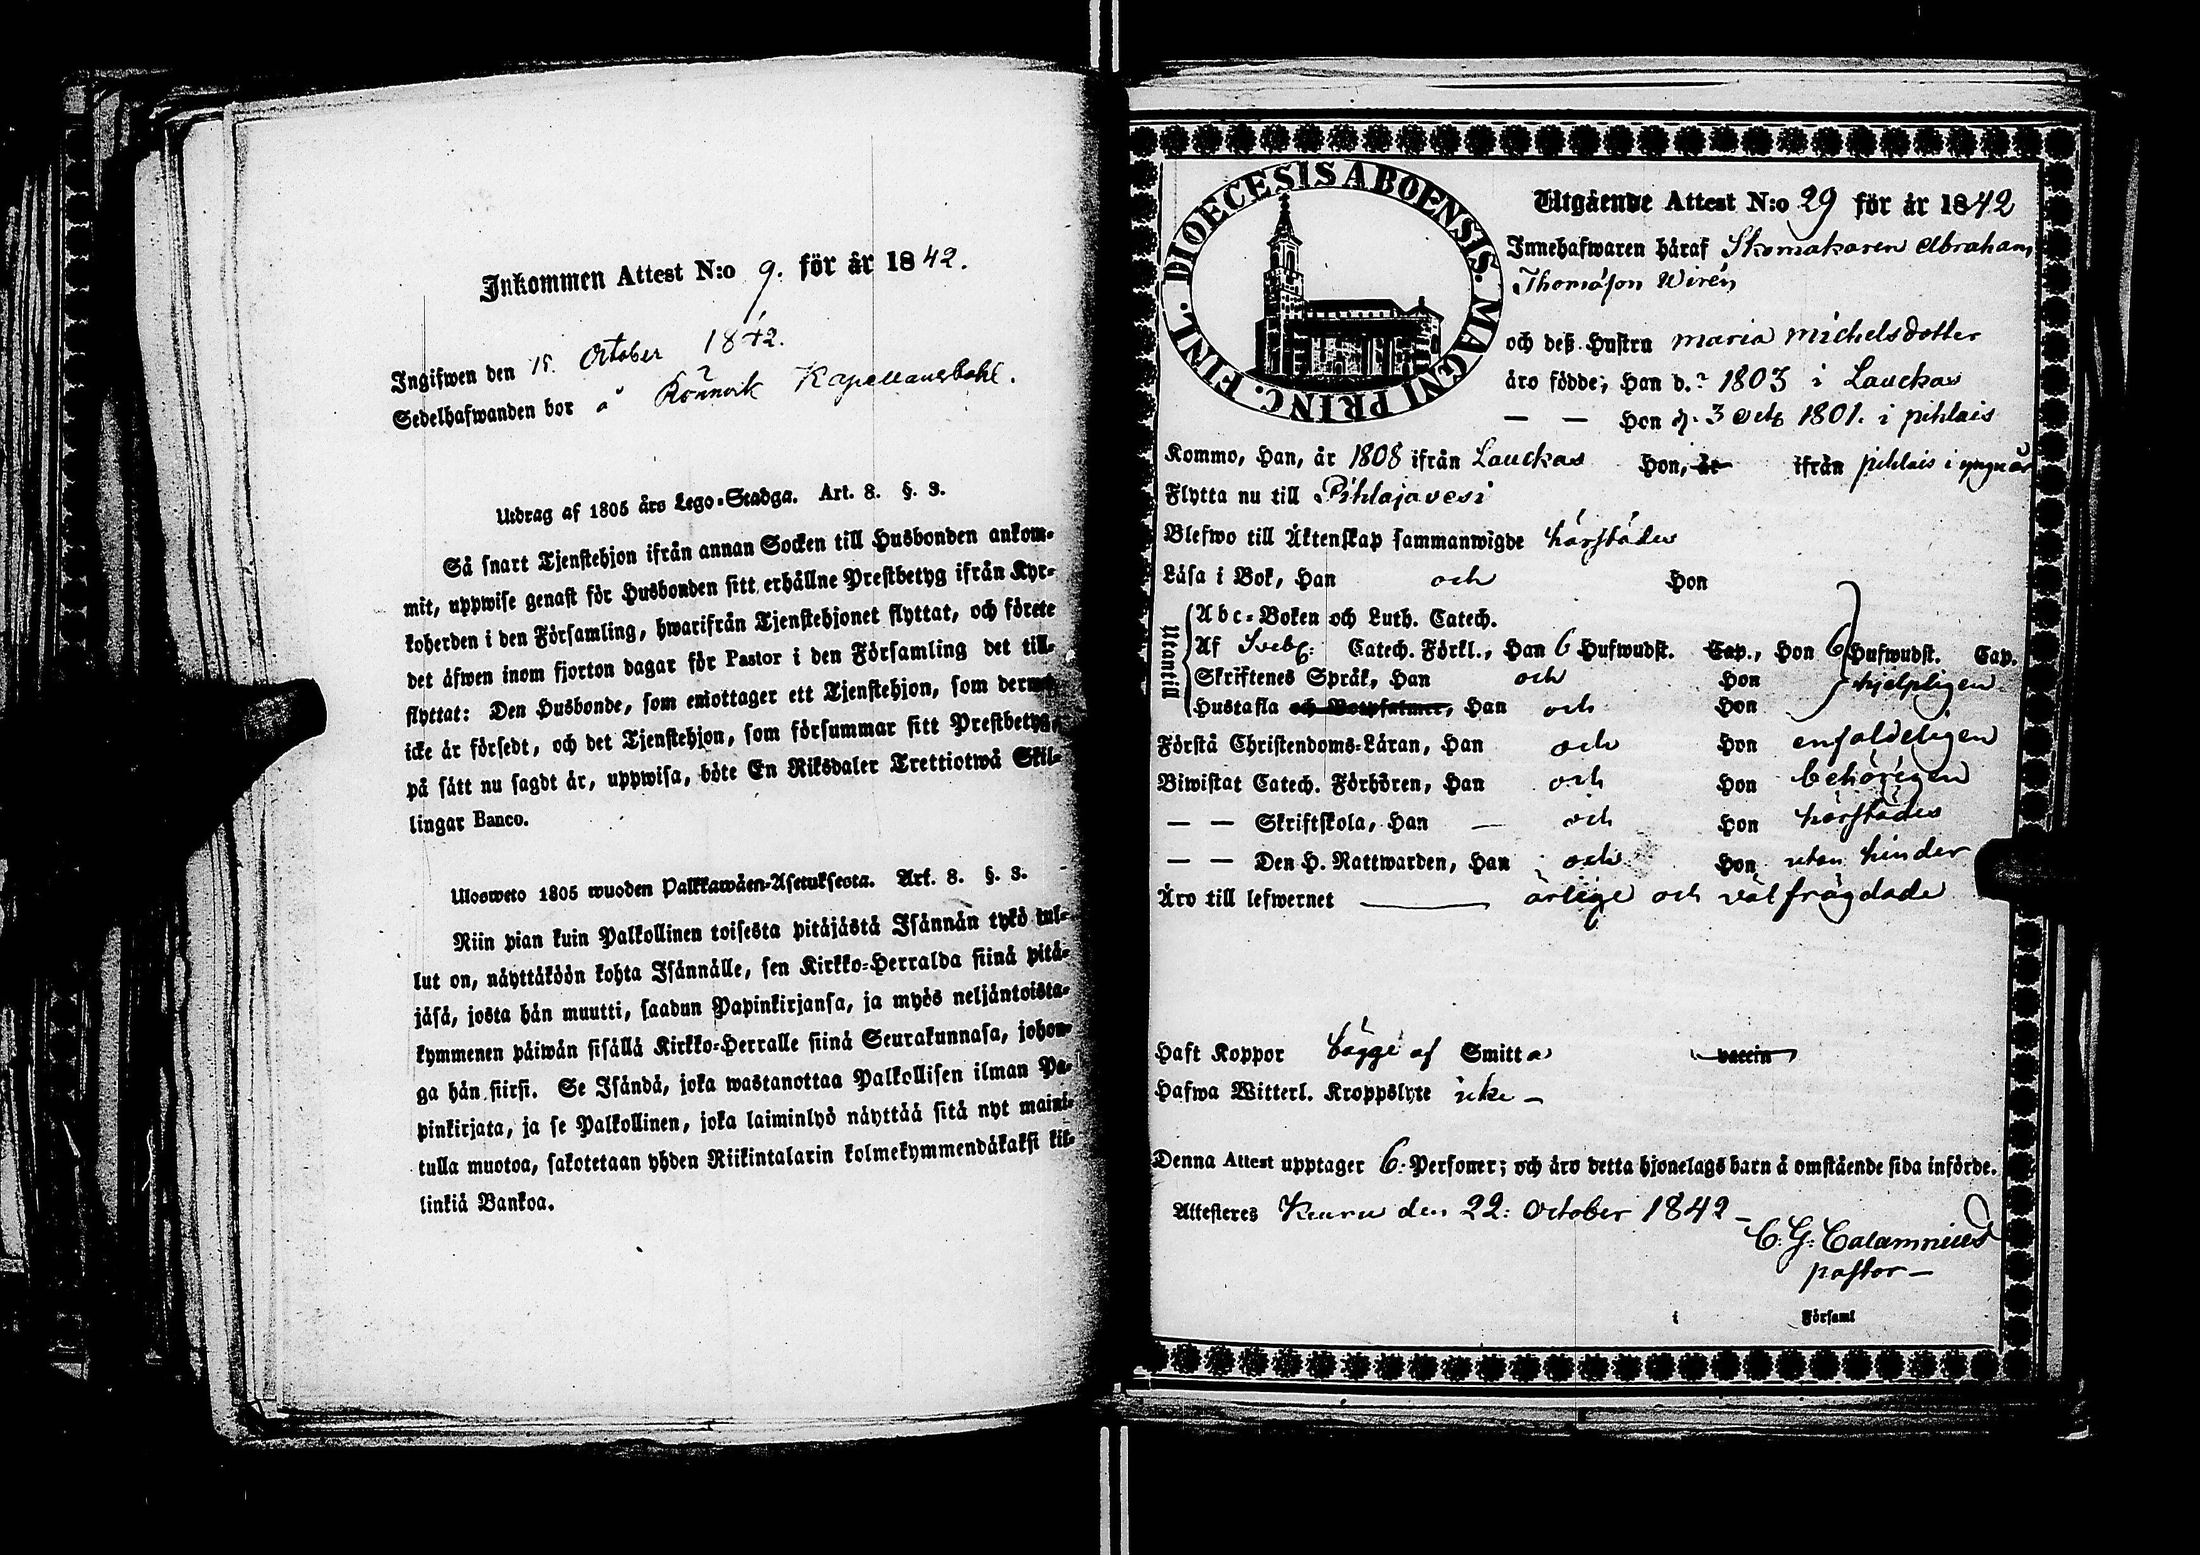 Inkommen Attest N:o 9. för år 1842.
Ingifwen den 15. October 1842.
Sedelhafwanden bor å Kapellansbohl.
Utdrag af 1805 års Lego-Stadga. Art. 8. §. 3.
Så snart Tjenstehjon ifrån annan Socken till Husbonden ankom-
mit, uppwise genast för Husbonden sitt erhållne Prestbetyg ifrån Kyr-
koherden i den Församling, hwarifrån Tjenstehjonet flyttat, och förete
det äfwen inom fjorton dagar för Pastor i den Församling det till-
flyttat: Den Husbonde, som emottager ett Tjenstehjon, som dermed
icke är försedt, och det Tjenstehjon, som försummar sitt Prestbetyg,
på sätt nu sagdt är, uppwisa, böte En Riksdaler Trettiotwå Skil-
lingar Banco.
Ulosweto 1805 wuoden Palkkawäen-Asetuksesta. Art. 8. §. 3.
Niin pian kuin Palkollinen toisesta pitäjästä Isännän tykö tul-
lut on, näyttäköön kohta Isännälle, sen Kirkko-Herralda siinä pitä-
jäsä, josta hän muutti, saadun Papinkirjansa, ja myös neljäntoista-
kymmenen päiwän sisällä Kirkko-Herralle siinä Seurakunnasa, johon-
ga hän siirsi. Se Isändä, joka wastanottaa Palkollisen ilman Pa-
pinkirjata, ja se Palkollinen, joka laiminlyö näyttää sitä nyt maini-
tulla muotoa, sakotetaan yhden Riikintalarin kolmekymmendäkaksi kil-
linkiä Bankoa.
DIOECESIS ABOENSIS. MAGNI PRINC. FINL.
Utgående Attest N:o 29 för år 1842
Innehafwaren häraf Skomakaren Abraham
Thomasson Wirén
och deß Hustru Maria Michelsdotter
äro födde; Han d. 1803 i Lauckas
— — Hon d. 3 Octb 1801. i pihlais
Kommo, Han, år 1808 ifrån Lauckas Hon, år ifrån pihlais i yngre år
Flytta nu till Pihlajavesi
Blefwo till Äktenskap sammanwigde härstädes
Läsa i Bok, Han och Hon
Utantill
Abc-Boken och Luth. Catech.
Af Sveb: Catech. Förkl., Han 6 Hufwudst. Cap., Hon 6 Hufwudst. Cap.
Skriftenes Språk, Han och Hon hjelpligen
Hustafla och Botpsalmer, Han och Hon
Förstå Christendoms-Läran, Han och Hon enfaldeligen
Biwistat Catech. Förhören, Han och Hon behörigen
— — Skriftskola, Han — och Hon härstädes
— — Den H. Nattwarden, Han och Hon utan hinder
Äro till lefwernet — ärlige och välfrägdade
Haft Koppor bägge af Smitta vaccin
Hafwa Witterl. Kroppslyte icke —
Denna Attest upptager 6: Personer; och äro detta hjonelags barn å omstående sida införde.
Attesteres Keuru den 22: October 1842 —
C. G. Calamnius
pastor —
i Församl